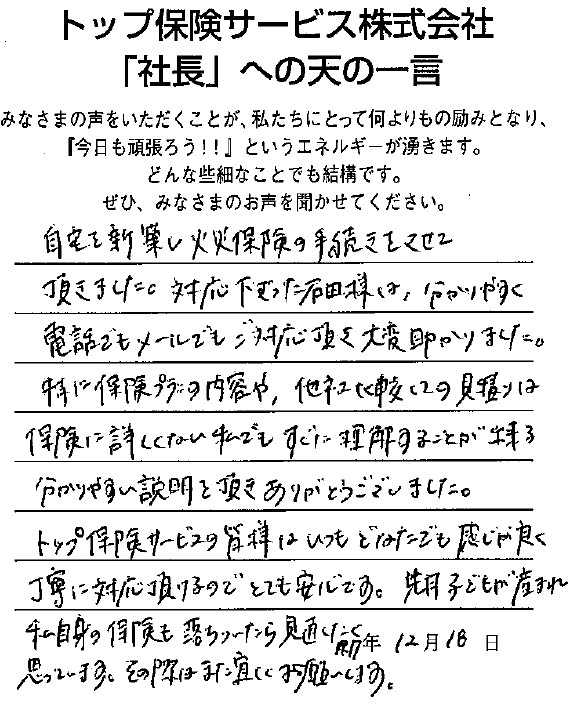 トップ保険サービス株式会社
「社長」への天の一言
みなさまの声をいただくことが、私たちにとって何よりもの励みとなり、
『今日も頑張ろう!!』というエネルギーが湧きます。
どんな些細なことでも結構です。
ぜひ、みなさまのお声を聞かせてください。
自宅を新築し火災保険の手続きをさせて
頂きました。対応下さった石田様は、分かりやすく
電話でもメールでもご対応頂き大変助かりました。
特に保険プランの内容や、他社比較しての見積りは
保険に詳しくない私でもすぐに理解することが出来る
分かりやすい説明を頂きありがとうございました。
トップ保険サービスの皆様はいつもどなたでも感じが良く
丁寧に対応頂けるのでとても安心です。先月子どもが産まれ
私自身の保険も落ちついたら見直したく
年12月18日
思っています。その際はまた宜しくお願いします。